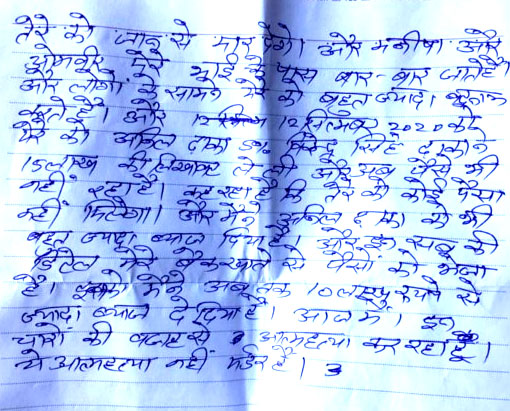 तेरे को जान से मार देंगे। और मनीषा और
ओमवीर मेरे भाई के पास बार-बार जाते है।
और लोगो के सामने मेरे को बहुत ज्यादा
करते है। और 12 सितम्बर 2020 को
मेरे को अनिल ढाका S/o विरेन्द्र सिंह ढाका ने
15 लाख की लिखाकर ले ली और अब पैसे भी
नहीं रहा है। कह रहा है कि तेरे को कोई पैसा
नहीं मिलेगा। और मैंने अनिल ढाका को भी
बहुत ज्यादा ब्याज दिया है। और इन सब की
डिटेल मेरे बैंक खाते से पैसों को भेजा
है। इसको मैंने अब तक 10 लाख रुपये से
ज्यादा ब्याज दे दिया है। आज मैं। इन
चारो की वजह से आत्महत्या कर रहा हूँ।
ये आत्महत्या नहीं मर्डर है। 3